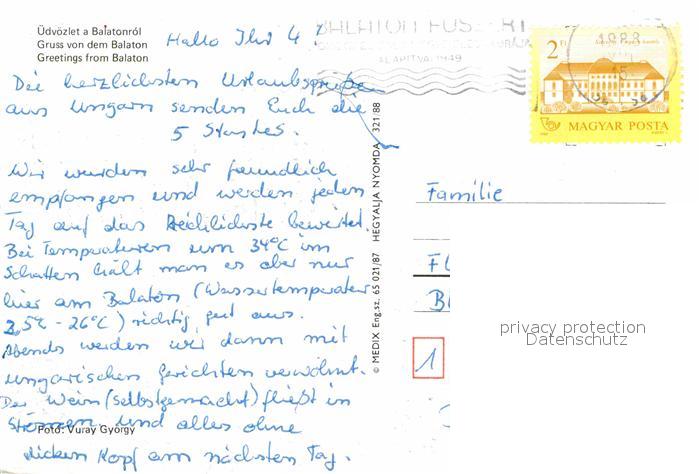 Üdvözlet a Balatonról
Gruss von dem Balaton
Greetings from Balaton
Hallo Ihr 4!
Die herzlichsten Urlaubsgrüße
aus Ungarn senden Euch die
5
Wir wurden sehr freundlich
empfangen und werden jeden
Tag auf das Reichlichste bewirtet.
Bei Temperaturen um 34°C im
Schatten hält man es aber nur
hier am Balaton (Wassertemperatur
25°C - 26°C) richtig gut aus.
Abends werden wir dann mit
ungarischen Gerichten verwöhnt.
Der Wein (selbstgemacht) fließt in
Strömen und alles ohne
Foto: Vuray György
dicken Kopf am nächsten Tag.
© MEDIX Eng.sz. 65 021/87 HEGYALJA NYOMDA 321/88
BALATON FÜSZÉRT
ALAPÍTVA: 1949
1988
2 Ft
MAGYAR POSTA
Familie
Fl
B
1
privacy protection
Datenschutz